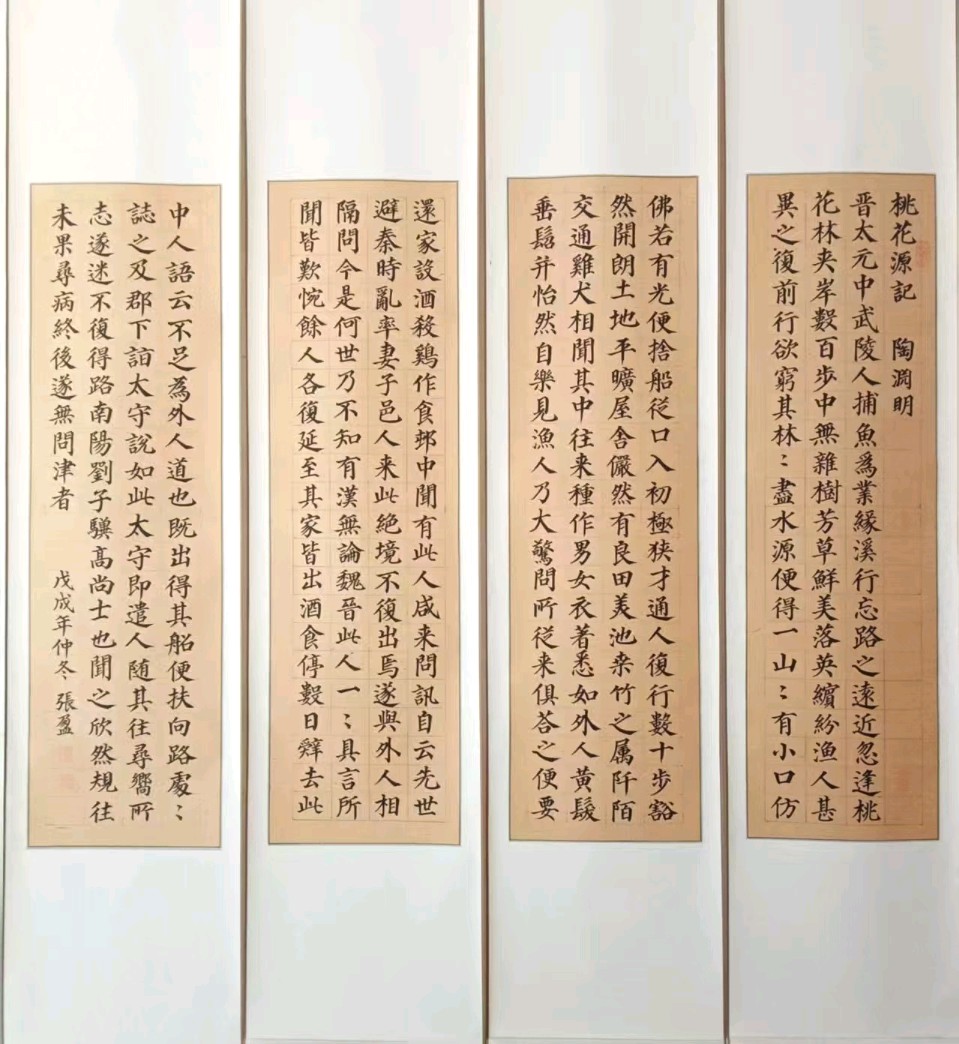 桃花源記　陶淵明
晉太元中武陵人捕魚為業緣溪行忘路之遠近忽逢桃
花林夹岸數百步中無雜樹芳草鮮美落英繽紛漁人甚
異之復前行欲窮其林〻盡水源便得一山〻有小口仿
佛若有光便捨船從口入初極狹才通人復行數十步豁
然開朗土地平曠屋舍儼然有良田美池桒竹之属阡陌
交通雞犬相聞其中往来種作男女衣著悉如外人黃髮
垂髫并怡然自樂見漁人乃大驚問所從来俱荅之便要
還家設酒殺鷄作食邨中聞有此人咸来問訊自云先世
避秦時亂率妻子邑人来此絕境不復出焉遂與外人相
隔問今是何世乃不知有漢無論魏晉此人一〻具言所
聞皆歎惋餘人各復延至其家皆出酒食停數日辤去此
中人語云不足為外人道也既出得其船便扶向路處〻
誌之及郡下詣太守說如此太守即遣人随其往尋嚮所
志遂迷不復得路南陽劉子驥高尚士也聞之欣然規往
未果尋病終後遂無問津者　戊戌年仲冬　張盈